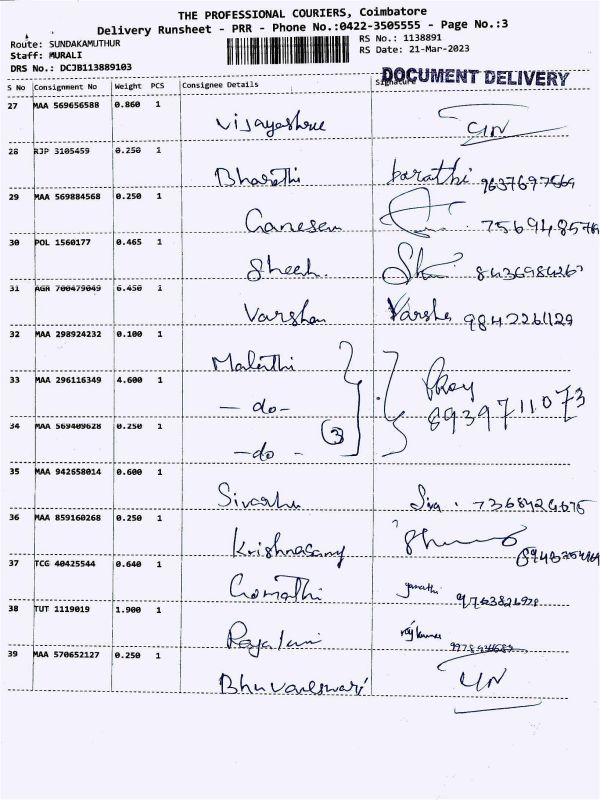 THE PROFESSIONAL COURIERS, Coimbatore
Delivery Runsheet - PRR - Phone No.:0422-3505555 - Page No.:3
Route: SUNDAKAMUTHUR
Staff: MURALI
DRS No.: DCJB113889103
RS No.: 1138891
RS Date: 21-Mar-2023
DOCUMENT DELIVERY
S No Consignment No Weight PCS Consignee Details Signature
27 MAA 569656588 0.860 1 Vijayashree
28 RJP 3105459 0.250 1 Bharathi barathi
29 MAA 569884568 0.250 1 Ganesan
30 POL 1560177 0.465 1
31 AGR 700479049 6.450 1 Varshan Varsha 9842261129
32 MAA 298924232 0.100 1 Malathi
33 MAA 296116349 4.600 1 - do - 8939711073
34 MAA 569409628 0.250 1 - do - 3
35 MAA 942658014 0.600 1 Siva
36 MAA 859160268 0.250 1 Krishnasamy
37 TCG 40425544 0.640 1 Gomathi gomathi
38 TUT 1119019 1.900 1 raj kumar
39 MAA 570652127 0.250 1 Bhuvaneswari